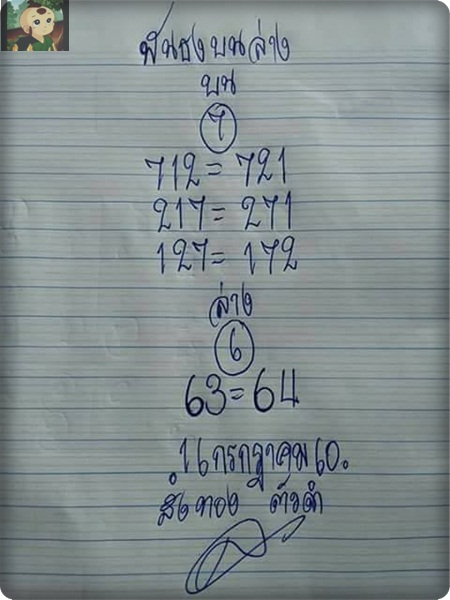 ฟันธงบนล่าง
บน
7
712 = 721
217 = 271
127 = 172
ล่าง
6
63 = 64
16 กรกฎาคม 60.
สังข์ทอง ตัวดำ